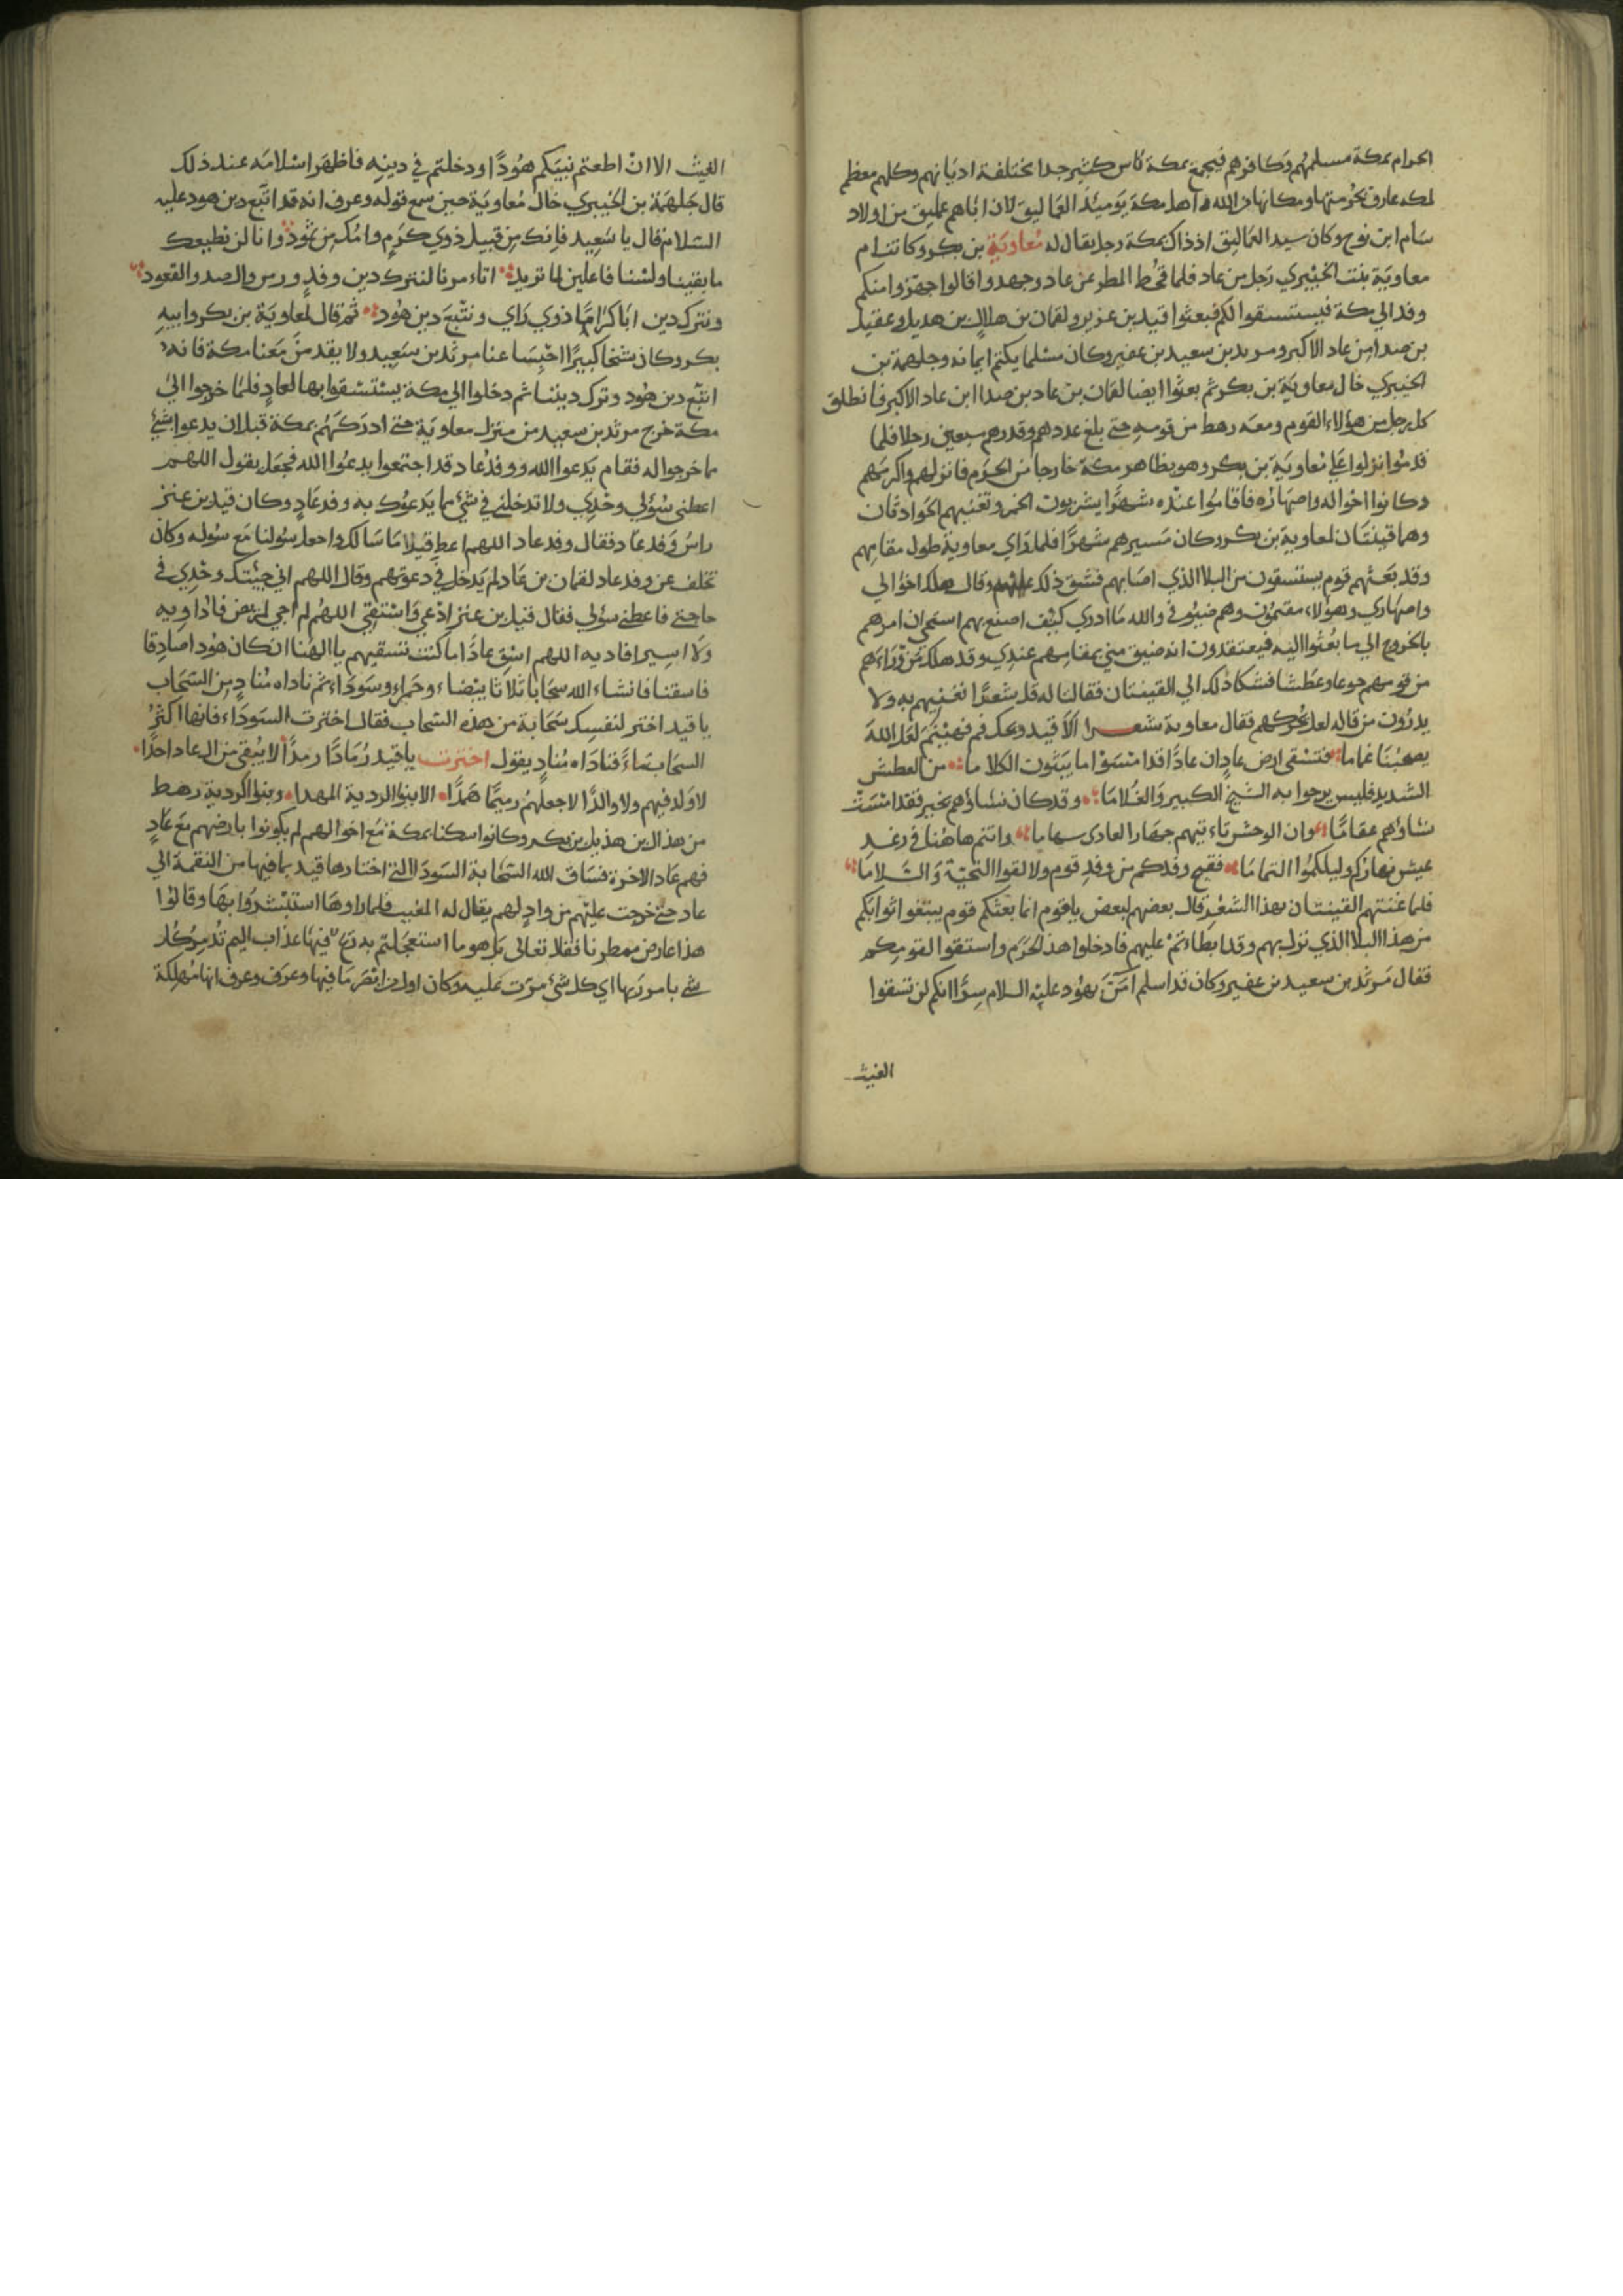 الحرام بمكة مسلمهم وكافرهم فيجمع بمكة ناس كثير جدا مختلفة اديانهم وكلهم معظم
لمكة عارف بحرمتها ومكانها من الله واهل مكة يومئذ العماليق لان اباهم عمليق من اولاد
سام ابن نوح وكان سيد العماليق اذ ذاك بمكة رجل يقال له معاوية بن بكر وكانت ام
معاوية بنت الخيبري رجل من عاد فلما قحط المطر عن عاد وجهدوا قالوا جهزوا منكم
وفدا الي مكة فيستسقوا لكم فبعثوا قيد بن عنز ولقمان بن هلال بن هديل وعقيل
بن صندا من عاد الاكبر ومرثد بن سعيد بن عفير وكان مسلما يكتم ايمانه وجلهمة بن
الخيبري خال معاوية بن بكر ثم بعثوا ايضا لقمان بن عاد بن صندا ابن عاد الاكبر فانطلق
كل رجل من هؤلاء القوم ومعه رهط من قومه حتي بلغ عددهم وقدرهم سبعين رجلا فلما
قدموا نزلوا علي معاوية بن بكر وهو بظاهر مكة خارجا من الحرم فانزلهم واكرمهم
وكانوا اخواله واصهاره فاقاموا عنده شهرا يشربون الخمر وتغنيهم الجرادتان
وهما قينتان لمعاوية بن بكر وكان مسيرهم شهرا فلما راي معاوية طول مقامهم
وقد بعثهم قوم يستسقون من البلا الذي اصابهم فشق ذلك عليه وقال هلك اخوالي
واصهاري وهؤلاء مقيمون وهم ضيوفي والله ما ادري كيف اصنع بهم استحي ان امرهم
بالخروج الي ما بعثوا اليه فيعتقدون انه ضيق مني بمقامهم عندي وقد هلك من وراءهم
من قومهم جوعا وعطشا فشكا ذلك الي القينتان فقالتا له قل شعرا نغنيهم به ولا
يدرون من قاله لعل يحركهم فقال معاوية شعرا الا قيد ويحك قم فهينم لعل الله
يصحبنا غماما فتسقي ارض عاد ان عادا قد امسوا ما يبثون الكلاما من العطش
الشديد فليس يرجوا به الشيخ الكبير والغلاما وقد كان نساؤهم بخير فقد امست
نساؤهم عقاما وان الوحش تاتيهم جهارا لعادي سهاما وانتم هاهنا في رغد
عيش نهاركم وليلكموا التماما فقبح وفدكم من وفد قوم ولا لقوا التحية والسلاما
فلما غنتهم القينتان بهذا الشعر قال بعضهم لبعض يا قوم انما بعثكم قوم يبتغوا
من هذا البلا الذي نزل بهم وقد ابطاءتم عليهم فادخلوا هذا الحرم واستقوا لقومكم
فقال مرثد بن سعيد بن عفير وكان قد اسلم امن بهود عليه السلام سرا انكم لن تسقوا
الغيث
الغيث الا ان اطعتم نبيكم هودا ودخلتم في دينه فاظهر اسلامه عند ذلك
قال جلهمة بن الخيبري خال معاوية حين سمع قوله وعرف انه قد اتبع دين هود عليه
السلام قال يا سعيد فانك من قبيل ذوي كرم وامك من ثمود وانا لن نطيعك
ما بقينا ولسنا فاعلين لما تريد اتاءمرنا لنترك دين وفد ورس وال صد والقعود
ونترك دين ابا كراما ذوي راي ونتبع دين هود ثم قال لمعاوية بن بكر وابيه
بكر وكان شخا كبيرا احبسا عنا مرثد بن سعيد ولا يقدمن معنا مكة فانه
اتبع دين هود وترك ديننا ثم دخلوا الي مكة يستسقوا بها لعاد فلما خرجوا الي
مكة خرج مرثد بن سعيد من منزل معاوية حتي ادركهم بمكة قبل ان يدعوا بشئ
مما خرجوا له فقام يدعوا الله ووفد عاد قد اجتمعوا يدعوا الله فجعل يقول اللهم
اعطني سؤلي وحدي ولا تدخلني في شئ مما يدعوك به وفد عاد وكان قيد بن عنز
راس وفد عاد فقال وفد عاد اللهم اعط قيلا ما سالك واجعل سولنا مع سوله وكان
تخلف عن وفد عاد لقمان بن عاد لم يدخل في دعوتهم وقال اللهم اني جيتك وحدي في
حاجتي فاعطني سؤلي فقال قيل بن عنز اذ دعي واستسقي اللهم لم اجي لمريض فاداويه
ولا اسير افاديه اللهم اسق عادا ما كنت تسقيهم يا الهنا ان كان هود صادقا
فاسقنا فانشاء الله سحابا ثلاثا بيضاء وحمراء وسوداء ثم ناداه مناد من السحاب
يا قيد اختر لنفسك سحابة من هذه السحاب فقال اخترت السوداء فانها اكثر
السحاب ماء فناداه مناد يقول اخترت يا قيد رمادا رمدا لا يبقي من ال عاد احدا
لا ولد فيهم ولا والدا لا جعلهم رميما همدا الا بنوا اللردية المهدا وبنوا لكردية رهط
من هذال بن هذيل بن بكر وكانوا سكنا بمكة مع اخوالهم لم يكونوا بارضهم مع عاد
فهم عاد الاخرة فساق الله السحابة السودا التي اختارها قيد بما فيها من النقمة الي
عاد حتي خرجت عليهم من واد لهم يقال له المغيب فلما راوها استبشروا بها وقالوا
هذا عارض ممطرنا فقال تعالي بل هو ما استعجلتم به ريح فيها عذاب اليم تدمر كل
شئ بامر ربها اي كل شئ مرت عليه وكان اول من ابصر ما فيها وعرف وعرف انها مهلكة